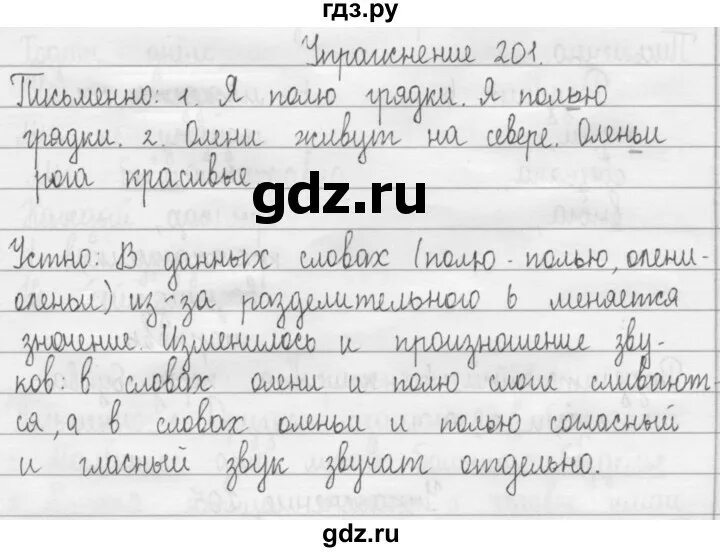 гдз.ру
Упражнение 201.
Письменно: 1. Я полю грядки. Я полью
грядки. 2. Олени живут на севере. Оленьи
рога красивые
gdz.ru
Устно: В данных словах (полю - полью, олени-
оленьи) из-за разделительного ь меняется
значение. Изменилось и произношение зву-
ков: в словах олени и полю слоги сливают-
ся, а в словах оленьи и полью согласный
и гласный звук звучат отдельно.
gdz.ru